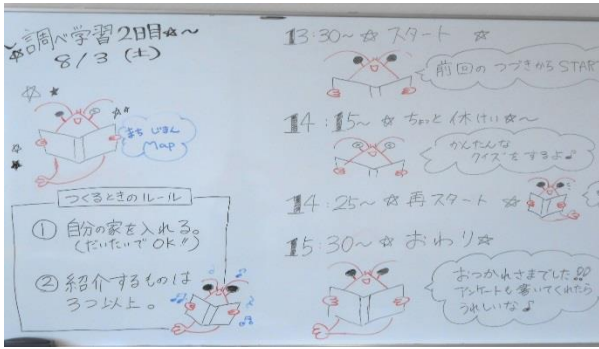 ～調べ学習2日目☆～
8/3 (土)
まち じまん
Map
つくるときのルール
① 自分の家を入れる。
(だいたいでOK!!)
② 紹介するものは
3つ以上。
13:30～☆ スタート ☆
前回のつづきからSTART
14:15～☆ ちょっと休けい☆～
かんたんな
クイズをするよ♪
14:25～☆ 再スタート ☆
15:30～☆ おわり☆
おつかれさまでした!!
アンケートも書いてくれたら
うれしいな♪